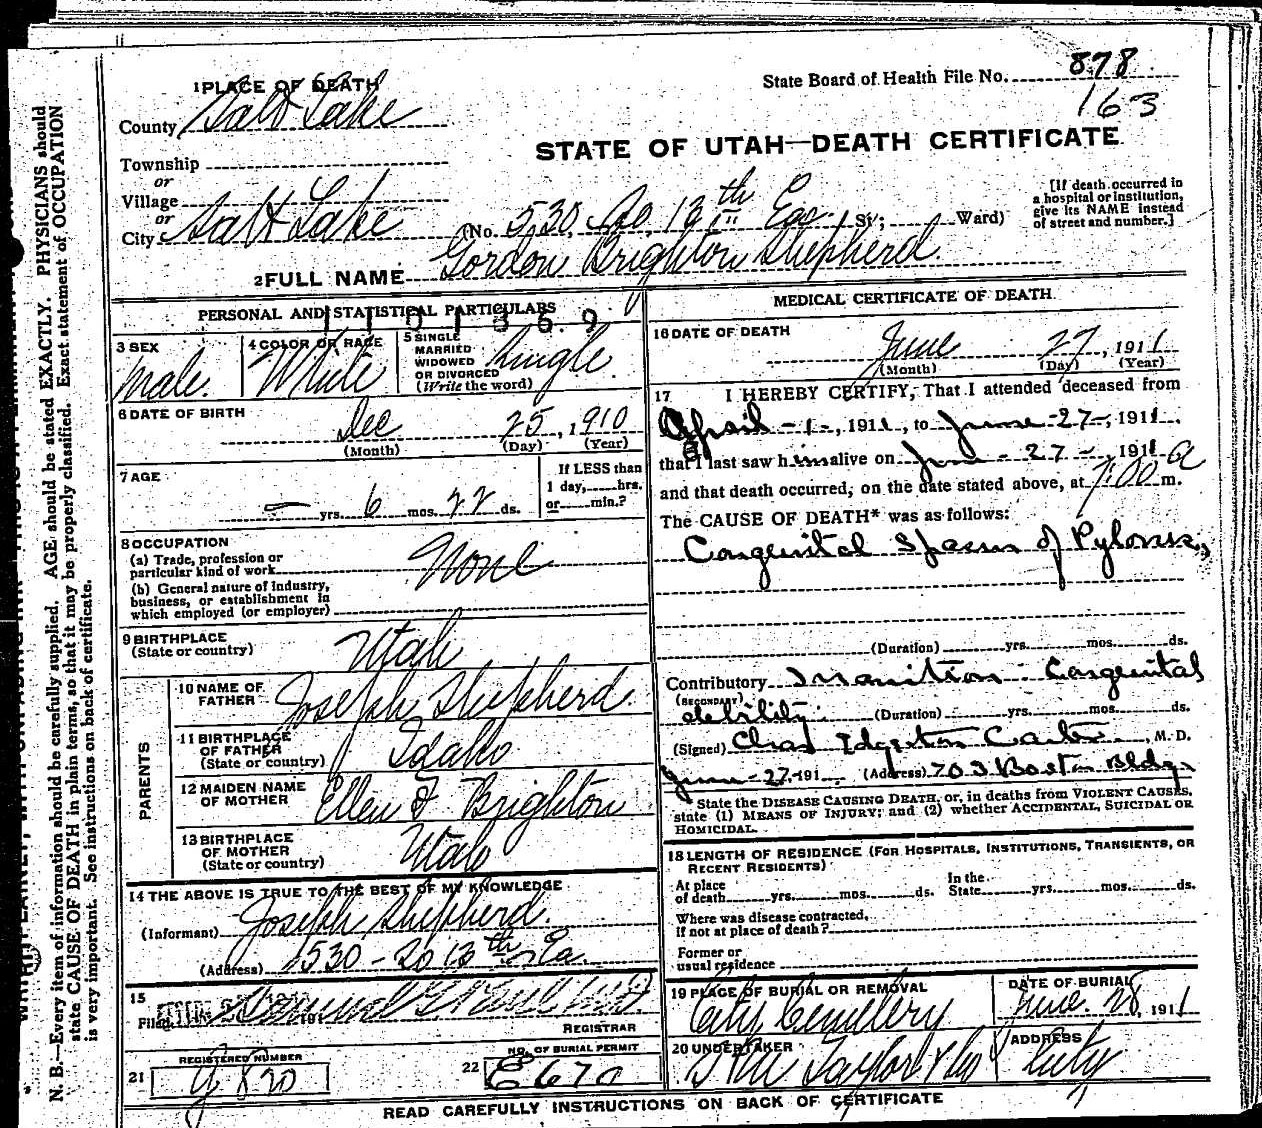 State Board of Health File No. 878
163
1 PLACE OF DEATH
County Salt Lake
STATE OF UTAH—DEATH CERTIFICATE
Township
or
Village
or
City Salt Lake (No. 530 So, 13th East St; Ward)
[If death occurred in
a hospital or institution,
give its NAME instead
of street and number.]
2 FULL NAME Gordon Brighton Shepherd
PERSONAL AND STATISTICAL PARTICULARS
3 SEX
Male.
4 COLOR OR RACE
White
5 SINGLE
MARRIED
WIDOWED
OR DIVORCED
(Write the word)
Single
6 DATE OF BIRTH
Dec 25, 1910
(Month) (Day) (Year)
7 AGE
— yrs. 6 mos. 22 ds.
If LESS than
1 day, hrs.
or min.?
8 OCCUPATION
(a) Trade, profession or
particular kind of work None
(b) General nature of industry,
business, or establishment in
which employed (or employer)
9 BIRTHPLACE
(State or country) Utah
PARENTS
10 NAME OF
FATHER Joseph Shepherd.
11 BIRTHPLACE
OF FATHER
(State or country) Idaho
12 MAIDEN NAME
OF MOTHER Ellen F Brighton
13 BIRTHPLACE
OF MOTHER
(State or country) Utah
14 THE ABOVE IS TRUE TO THE BEST OF MY KNOWLEDGE
(Informant) Joseph Shepherd.
(Address) 530 - So 13th Ea
15
Filed
REGISTRAR
REGISTERED NUMBER
21
NO. OF BURIAL PERMIT
22 E670
MEDICAL CERTIFICATE OF DEATH
16 DATE OF DEATH
June 27, 1911
(Month) (Day) (Year)
17 I HEREBY CERTIFY, That I attended deceased from
April -1-, 1911, to June -27-, 1911.
that I last saw him alive on June - 27 -, 1911
and that death occurred, on the date stated above, at 7:00 a m.
The CAUSE OF DEATH* was as follows:
Congenital Spasm of Pylorus,
(Duration) yrs. mos. ds.
Contributory Inanition Congenital
(SECONDARY)
debility. (Duration) yrs. mos. ds.
(Signed) Chas Edgerton Carter, M. D.
June -27- 191 (Address) 703 Boston Bldg.
State the DISEASE CAUSING DEATH, or, in deaths from VIOLENT CAUSES,
state (1) MEANS OF INJURY; and (2) whether ACCIDENTAL, SUICIDAL OR
HOMICIDAL.
18 LENGTH OF RESIDENCE (FOR HOSPITALS, INSTITUTIONS, TRANSIENTS, OR
RECENT RESIDENTS)
At place
of death yrs. mos. ds.
In the
State yrs. mos. ds.
Where was disease contracted,
if not at place of death?
Former or
usual residence
19 PLACE OF BURIAL OR REMOVAL
City Cemetery
DATE OF BURIAL
June. 28, 1911
20 UNDERTAKER
Taylor & Co
ADDRESS
City
READ CAREFULLY INSTRUCTIONS ON BACK OF CERTIFICATE
N. B.—Every item of information should be carefully supplied. AGE should be stated EXACTLY. PHYSICIANS should
state CAUSE OF DEATH in plain terms, so that it may be properly classified. Exact statement of OCCUPATION
is very important. See instructions on back of certificate.